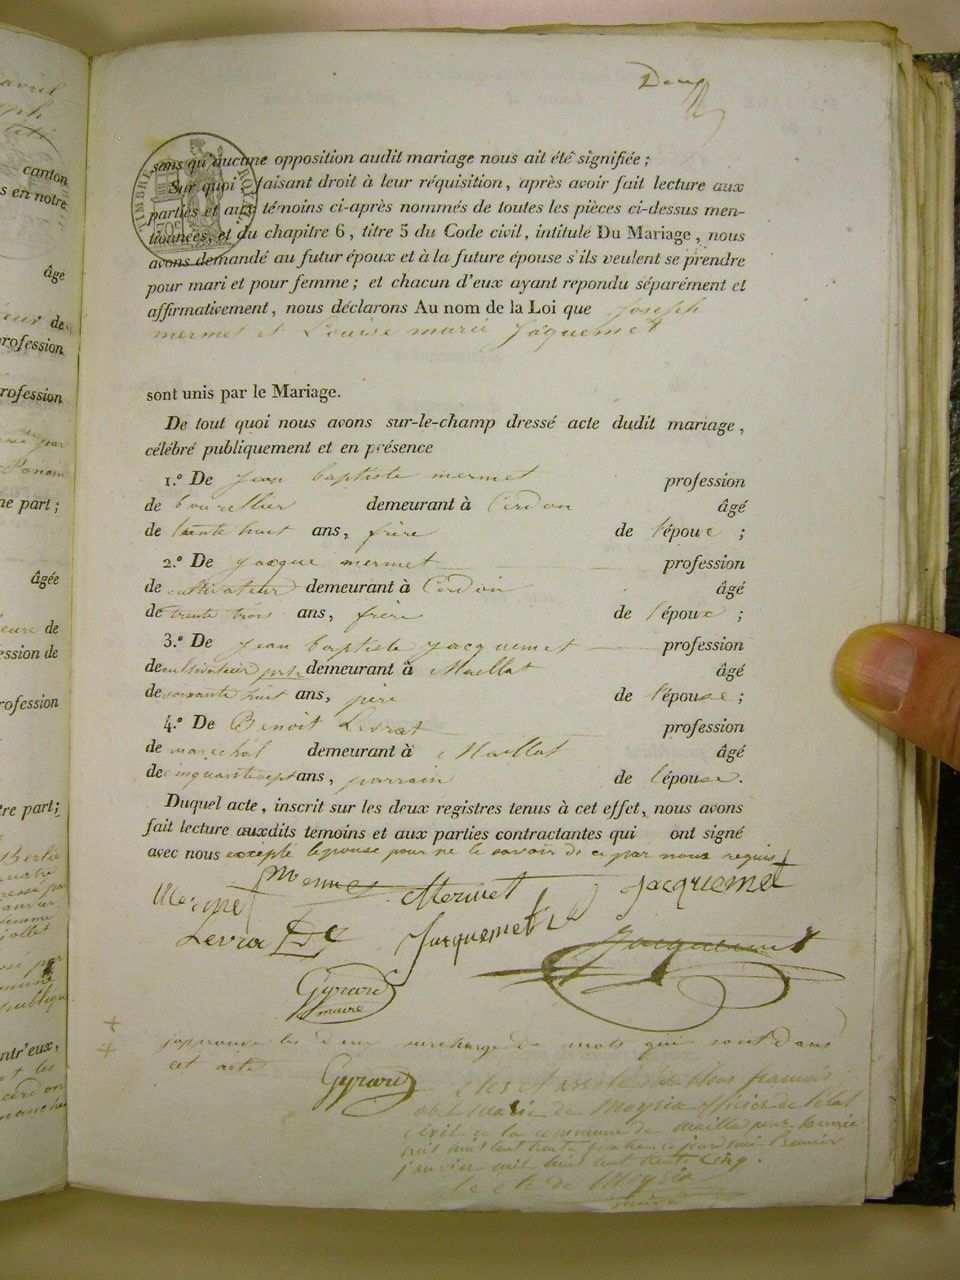 Deux
avril
canton
s en notre
âgé
de
profession
rofession
ne part ;
âgée
de
ssion de
rofession
tre part ;
ntr'eux,
TIMBRE ROYAL
sans qu'aucune opposition audit mariage nous ait été signifiée ;
Sur quoi faisant droit à leur réquisition, après avoir fait lecture aux
parties et aux témoins ci-après nommés de toutes les pièces ci-dessus men-
tionnées, et du chapitre 6, titre 5 du Code civil, intitulé Du Mariage, nous
avons demandé au futur époux et à la future épouse s'ils veulent se prendre
pour mari et pour femme ; et chacun d'eux ayant répondu séparément et
affirmativement, nous déclarons Au nom de la Loi que Joseph
mermet et Louise marie Jaquemet
sont unis par le Mariage.
De tout quoi nous avons sur-le-champ dressé acte dudit mariage,
célébré publiquement et en présence
1.º De Jean baptiste mermet profession
de bourellier demeurant à Cerdon âgé
de trente huit ans, frère de l'époux ;
2.º De Jacque mermet profession
de cultivateur demeurant à Cerdon âgé
de trente trois ans, frère de l'époux ;
3.º De Jean baptiste Jacquemet profession
de cultivateur demeurant à Maillat âgé
de soixante huit ans, père de l'épouse ;
4.º De Benoit Levrat profession
de marechal demeurant à Maillat âgé
de cinquante sept ans, parrain de l'épouse.
Duquel acte, inscrit sur les deux registres tenus à cet effet, nous avons
fait lecture auxdits temoins et aux parties contractantes qui ont signé
avec nous excepté lepouse pour ne le savoir de ce par nous requis
Mermet Mermet Jacquemet
Levra Jacquemet Jacquemet
Gyrard
maire
japprouve les deux surcharge de mots qui sont dans
cet acte Gyrard
clos et arreté par Nous francois
abel marie de Moyria officier de l'etat
civil de la commune de maillat pour l'année
mil huit cent trente quatre ce jourd'hui premier
janvier mil huit cent trente cinq.
le cte de Moyria
maire